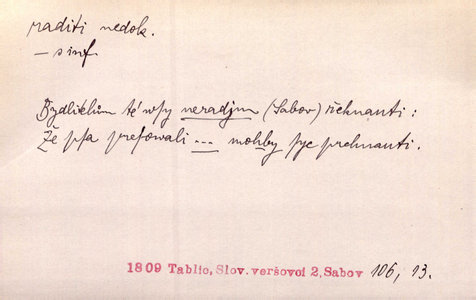 raditi nedok.
– s inf.
Bydlitelům té wsy neradjm (Sabow) řeknauti:
Že psa prefowali ... mohlby syc prehnanti.
1809 Tablic, Slov. veršovci 2, Sabov 106, 13.